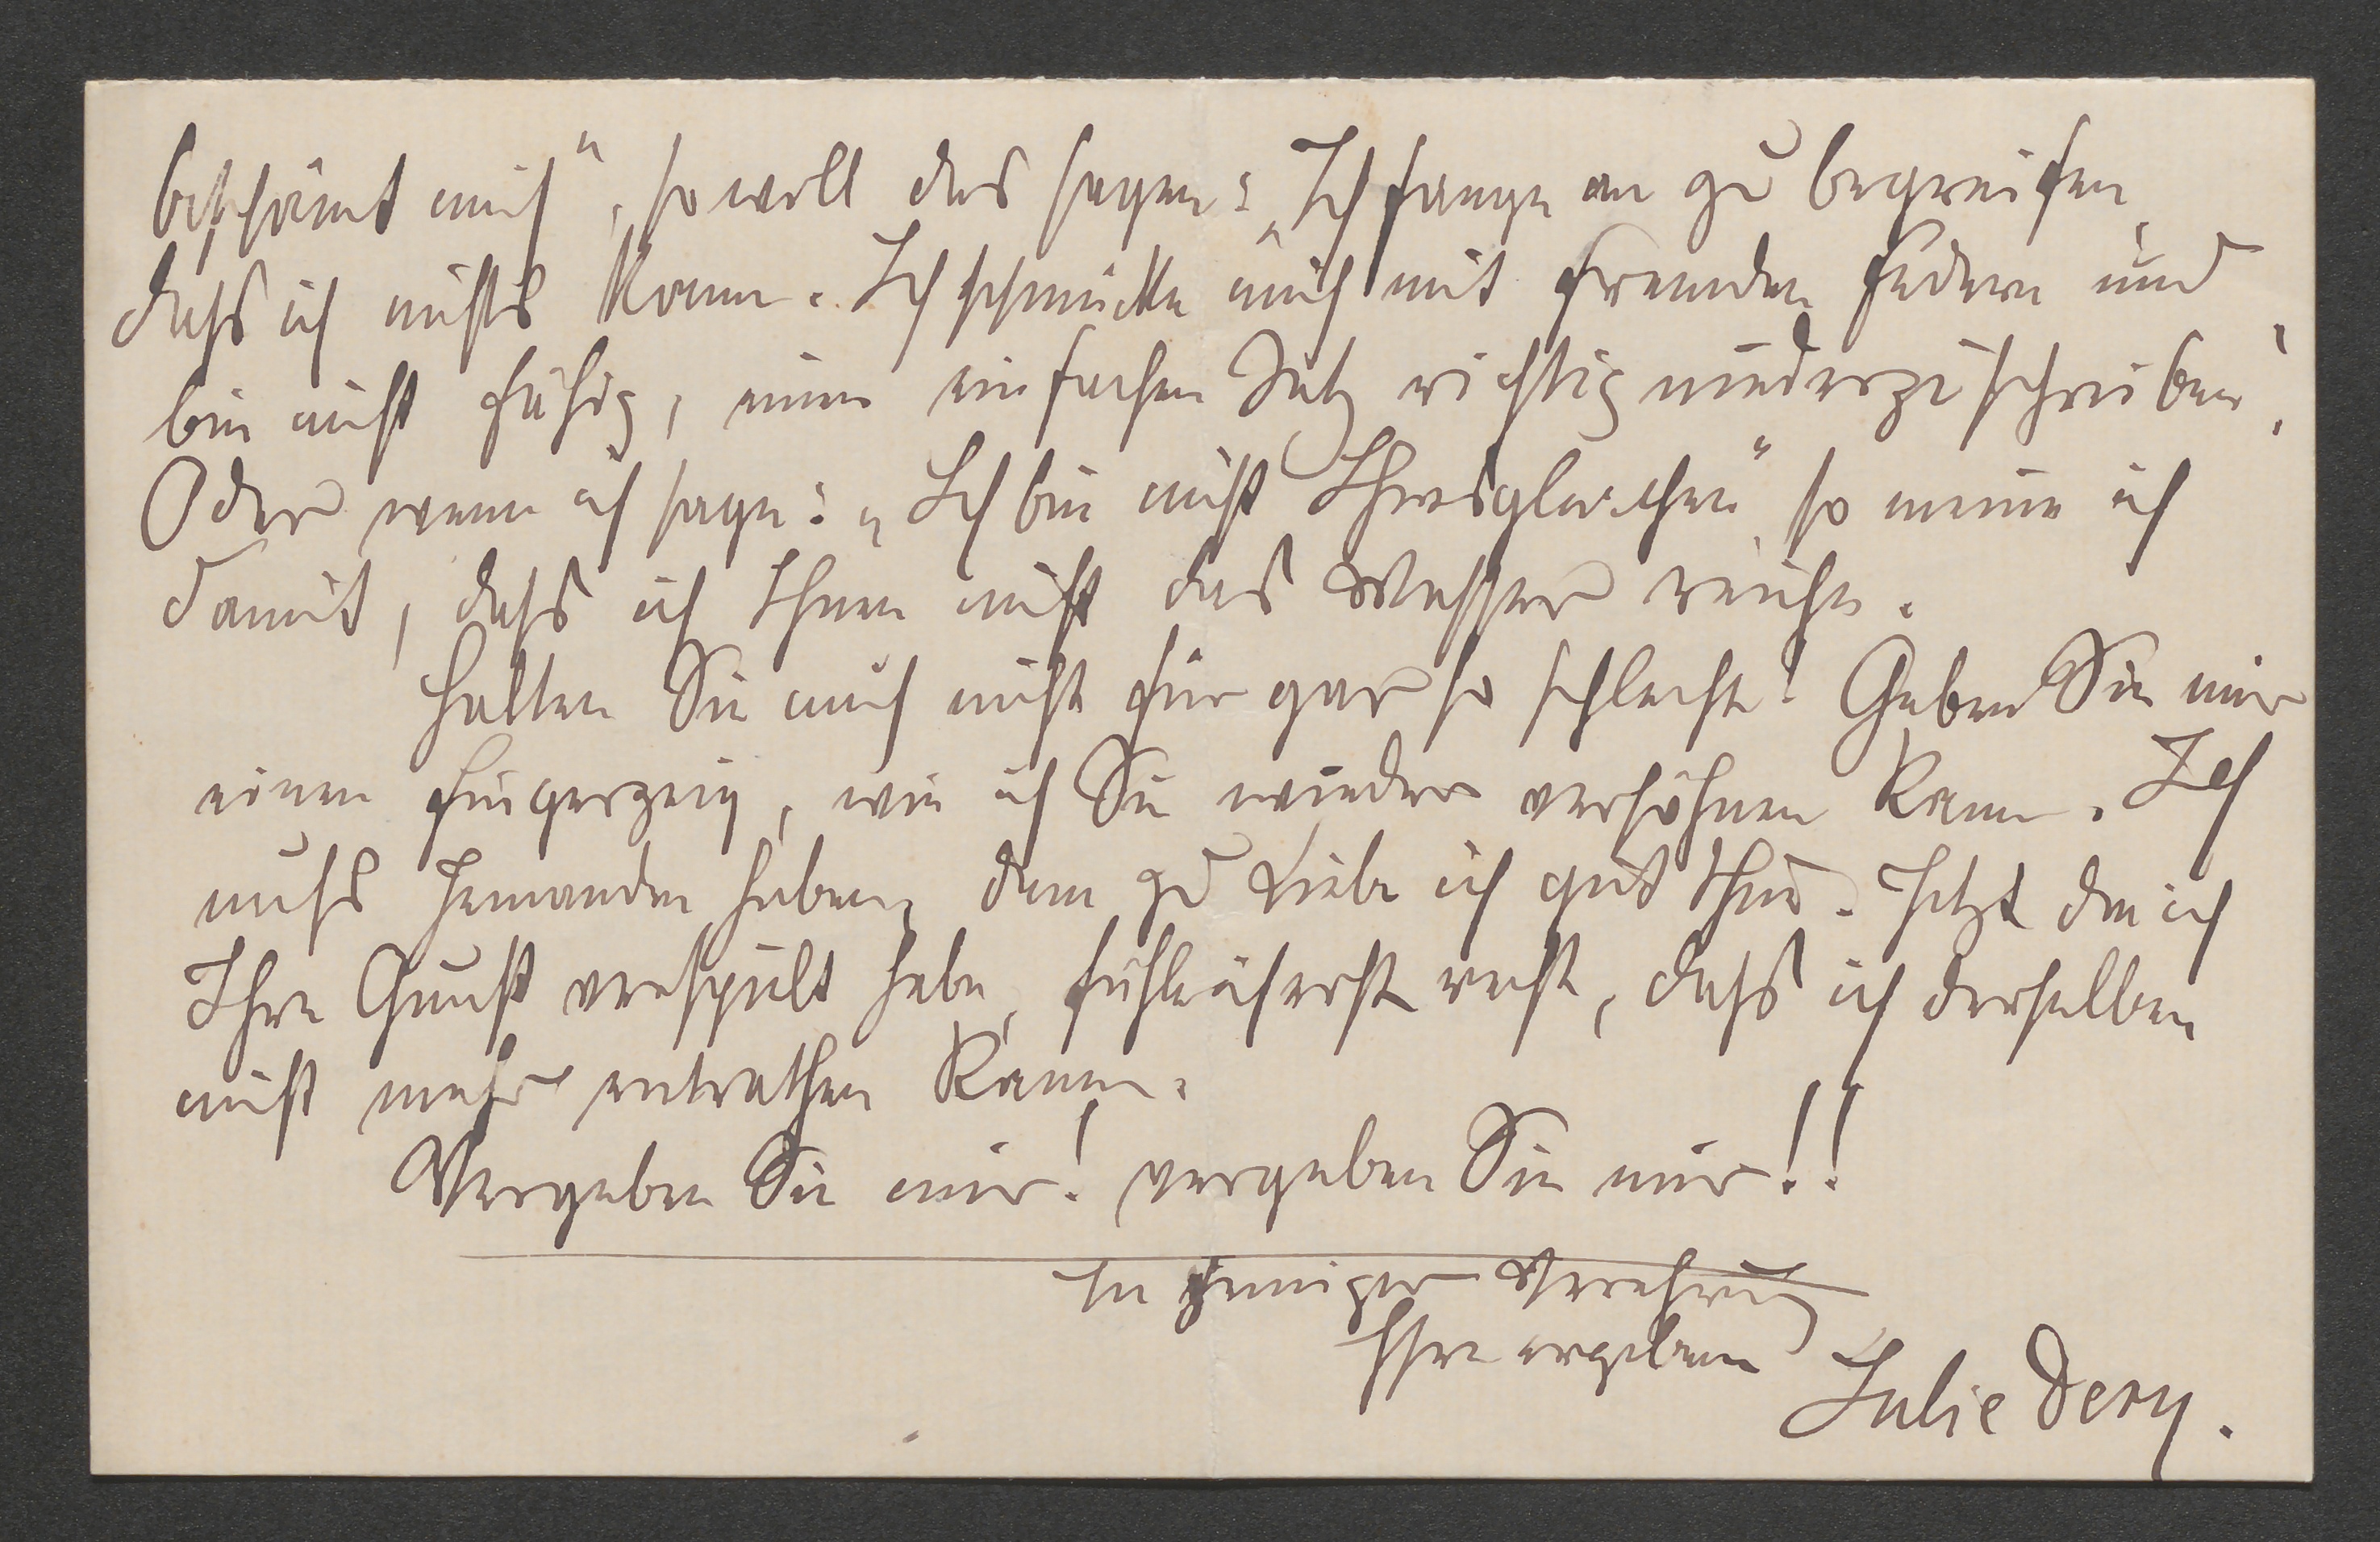 beschämt mich", so will das sagen: „Ich fange an zu begreifen,
dass ich nichts kann. Ich schmücke mich mit fremden Federn und
bin nicht fähig, einen einfachen Satz richtig niederzuschreiben".
Oder wenn ich sage: „Ich bin nicht Ihresgleichen" so meine ich
damit, dass ich Ihnen nicht das Wasser reiche.
Halten Sie mich nicht für gar so schlecht! Geben Sie mir
einen Fingerzeig, wie ich Sie wieder versöhnen kann. Ich
muss Jemanden haben, dem zu Liebe ich gut thue. Jetzt da ich
Ihre Gunst verspielt habe, fühle ich erst recht, dass ich derselben
nicht mehr entrathen kann.
Vergeben Sie mir! vergeben Sie mir!!
In inniger Verehrung
Ihre ergebene
Julie Dery.